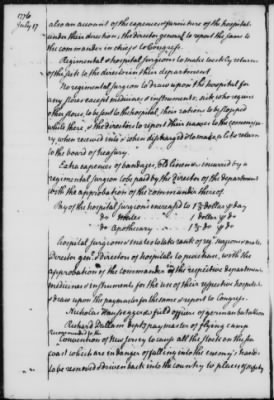 1776
July 17
also an account of the expences & furniture of the hospital
under their direction; the director general to report the same to
the commander in chief & to Congress.
Regimental & hospital surgeons to make weekly returns
of the sick to the director in their department
No regimental surgeon to draw upon the hospital for
any stores except medicines & instruments, sick who require
other stores, to be sent to the hospital, their rations to be stopped
while there, & the director to report their names to the commissary
when received into & when discharged & to make a like return
to the board of treasury.
Extra expences of bandages, old linnen &c incurred by a
regimental surgeon to be paid by the Director of the department
with the approbation of the commander thereof
Pay of the hospital surgeons encreased to 1⅔ dollar ⅌ day
do mates 1 dollar ⅌ do
do apothecary 1⅔ do ⅌ do
hospital surgeons & mates to take rank of regl surgeons & mates
Director genl & directors of hospital to purchase, with the
approbation of the commander in the respective departments
medicines & instruments for the use of their respective hospitals
& draw upon the paymaster for the same & report to Congress.
Nicholas Haussegger & field officers of german battalion
Richard Dallam depty paymaster of flying camp
Recommended to the
Convention of New Jersey to cause all the stock on the sea
coast which are in danger of falling into the enemy's hands
to be removed & driven back into the country to places of safety